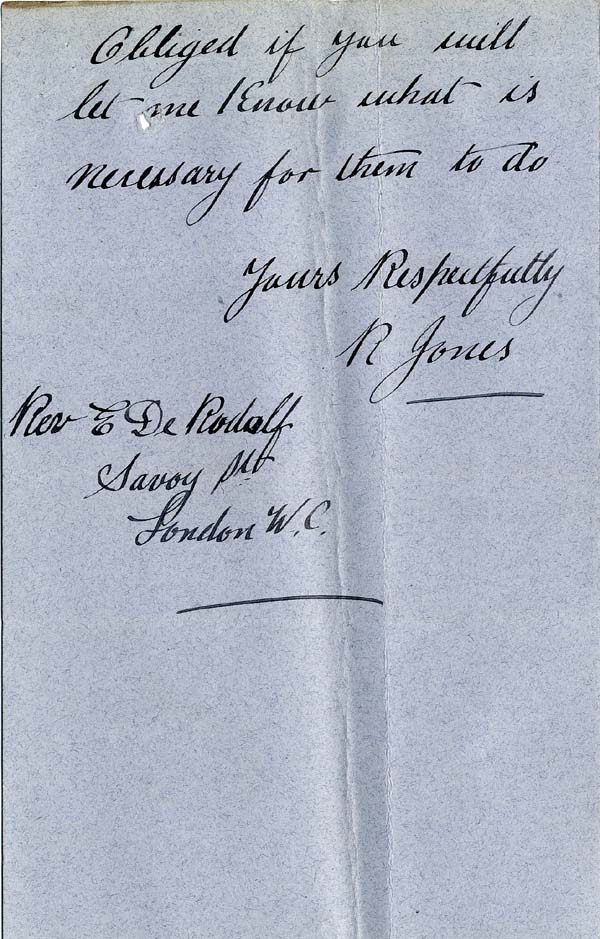 Obliged if you will
let me Know what is
necessary for them to do
Yours Respectfully
R Jones
Rev E De Rodalf
Savoy St
London W.C.